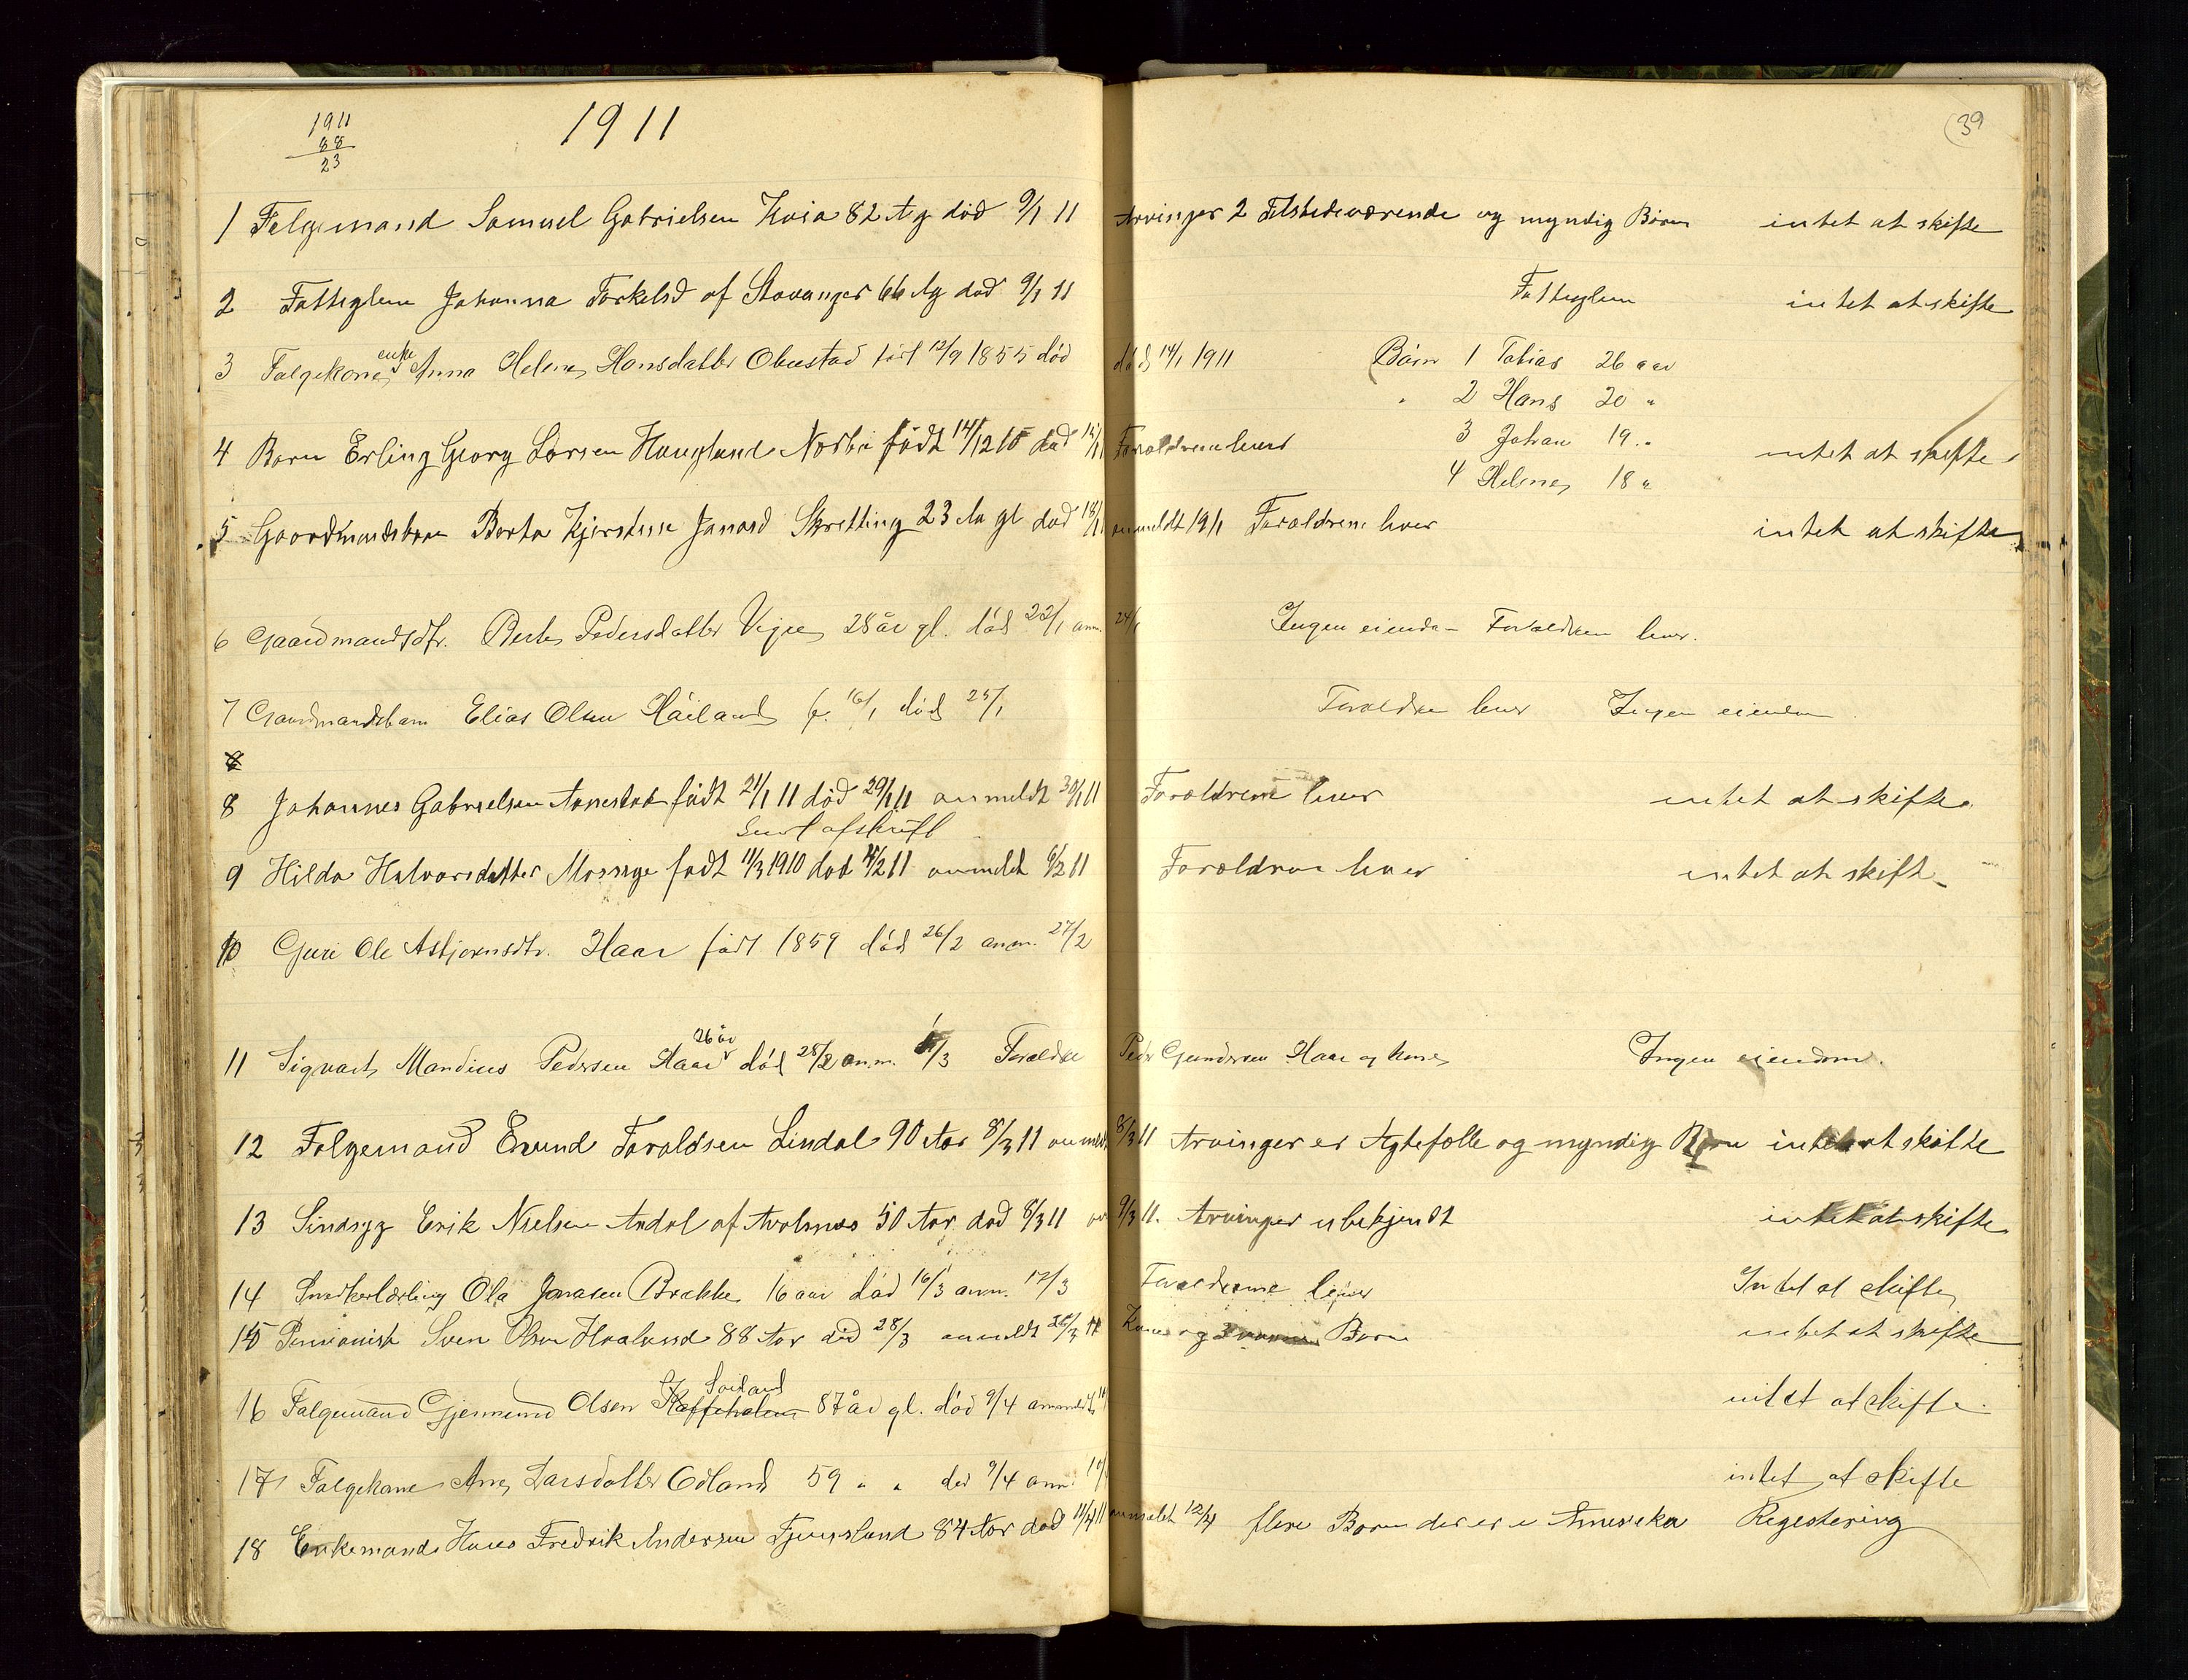 1911
88
23
1911
39
1 Folgemand Samuel Gabrielsen Kvia 82 Ag död 9/1 11 Arvinger 2 Tilstedeværende og myndig Börn intet at skifte
2 Fattiglem Johanna Torkelsd af Stavanger 66 Ag död 9/1 11 Fattiglem intet at skifte
3 Folgekone enke Anna Helene Hansdatter Obrestad född 12/9 1855 död död 14/1 1911 Börn 1 Tobias 26 aar
2 Hans 20 "
3 Johan 19 "
4 Barn Erling Georg Larsen Haugland Nærbø födt 14/12 10 död Foraldrene lever intet at skifte
4 Helene 18 "
5 Gaardmandsbarn Berta Kjerstine Janasd Skretting 23 Aa gl död 18/1 anmeldt 19/1 Foraldrene lever intet at skifte
6 Gaardmandsdtr. Berte Pedersdatter Vigre 28 år gl. död 22/1 anm. 24/1 Ingen eiendom Foraldren lever.
7 Gaardmandsbarn Elias Olsen Håiland f. 16/1 död 25/1 Foraldre lever Ingen eiendom
8
8 Johannes Gabrielsen födt 21/1 11 död 29/1 11 anmeldt 30/1 11 Foraldrene lever intet at skifte
Sent afskrift
9 Hilda Halvorsdatter Mossige födt 11/3 1910 död 4/2 11 anmeldt 6/2 11 Foraldrene lever intet at skifte
10 Guri Ole Asbjornsdtr. Haar födt 1859 död 26/2 anm. 27/2
26 år
11 Sigvart Mandius Pedersen Haar död 28/2 anm. 1/3 Foraldre Peder Gundersen Haar og kone Ingen eiendom.
12 Folgemand Eivind Taraldsen Lindal 90 Aar 8/3 11 anmeldt 8/3 11 Arvinger er Ægtefælle og myndig Börn intet at skifte
13 Sindsyg Erik Nielsen Andal af 50 Aar död 8/3 11 9/3 11. Arvinger ubekjendt intet at skifte
14 Snedkerlærling Ola Jonasen Brække 16 aar död 16/3 anm. 17/3 Foraldrene lever Intet at skifte
15 Pensionist Sven Olsen Haaland 88 Aar död 28/3 anmeldt 11 Kone og Barn intet at skifte
Soiland
16 Folgemand Gjermund Olsen 87 år gl. död 9/4 anmeldt intet at skifte.
17 Folgekone Ane Larsdatter Odland 59 " " död 9/4 anm. intet at skifte
18 Enkemand Hans Fredrik Andersen 84 Aar död 11/4 11 anmeldt 12/4 flere Barn der er i Amerika Registering